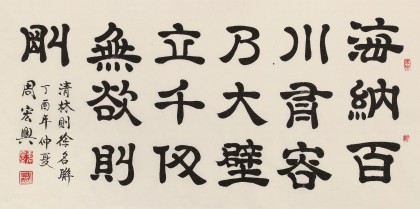 海納百
川有容
乃大壁
立千仞
無欲則
剛
清林則徐名聯
丁酉年仲夏
周宏興